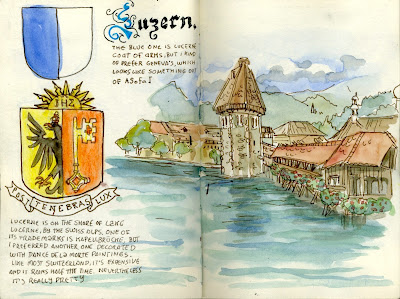 Luzern.
THE BLUE ONE IS LUCERNE
COAT OF ARMS, BUT I KIND
OF PREFER GENEVA'S, WHICH
LOOKS LIKE SOMETHING OUT
OF ASoFaI
IHS
POST TENEBRAS LUX
LUCERNE IS ON THE SHORE OF LAKE
LUCERNE, BY THE SWISS ALPS. ONE OF
ITS TRADEMARKS IS KAPELLBRÜCKE, BUT
I PREFERRED ANOTHER ONE DECORATED
WITH DANCE DE LA MORTE PAINTINGS.
LIKE MOST SWITZERLAND, IT'S EXPENSIVE
AND IT RAINS HALF THE TIME. NEVERTHELESS
IT'S REALLY PRETTY